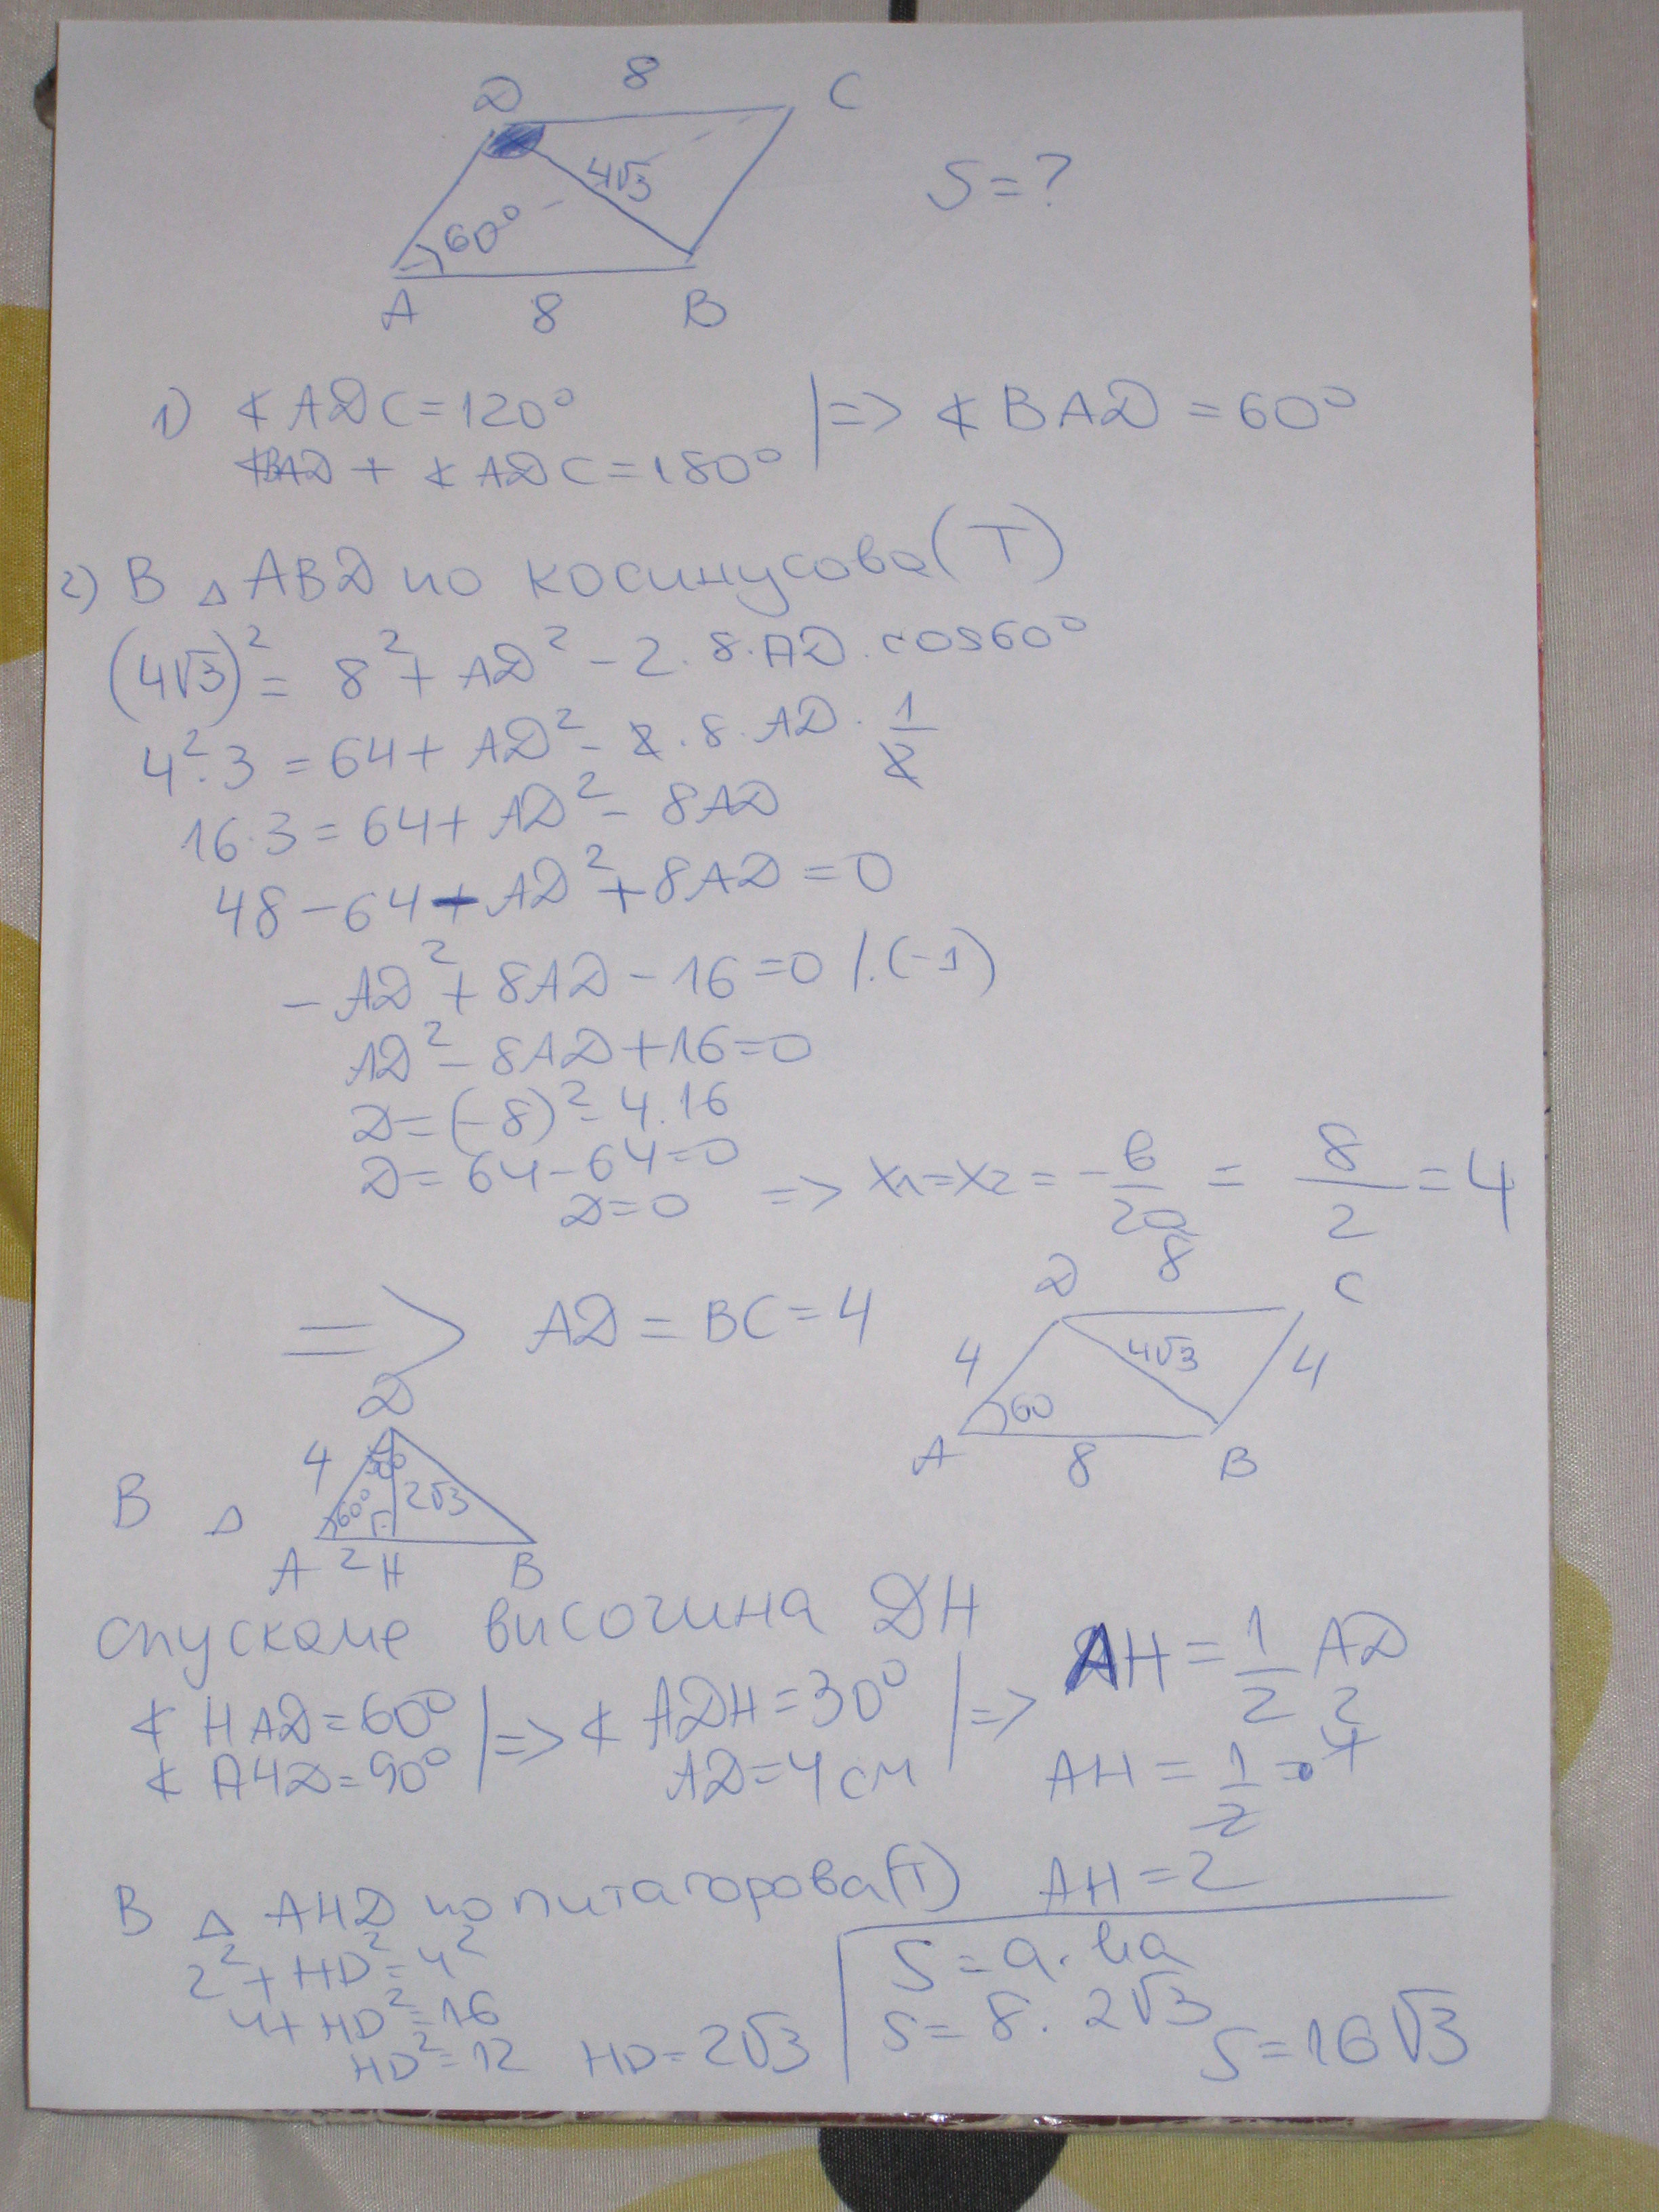 D 8 C
4√3
60°
S=?
A 8 B
1) ∢ ADC=120° |=> ∢ BAD = 60°
∢BAD + ∢ ADC=180°
2) В △ ABD по косинусова(Т)
(4√3)² = 8² + AD² - 2. 8.AD. cos60°
4².3 = 64+ AD² - 2.8.AD. 1/2
16.3=64+ AD² - 8AD
48-64-AD²+8AD=0
-AD²+8AD-16=0 /.(-1)
AD²-8AD+16=0
D=(-8)²-4.16
D=64-64=0
D=0 => x₁=x₂ = -b/2a = 8/2 = 4
=> AD = BC=4
D 8 C
4 4√3 4
60
A 8 B
D
4 30°
В △ 60° 2√3
A 2 H B
спускаме височина DH
∢ HAD=60° |=> ∢ ADH=30° |=> AH=1/2 AD
∢ AHD=90° AD=4см AH=1/2.4
AH=2
В △ AHD по питагорова(Т)
2²+HD²=4²
4+HD²=16
HD²=12 HD=2√3
S=a.ha
S=8.2√3 S=16√3